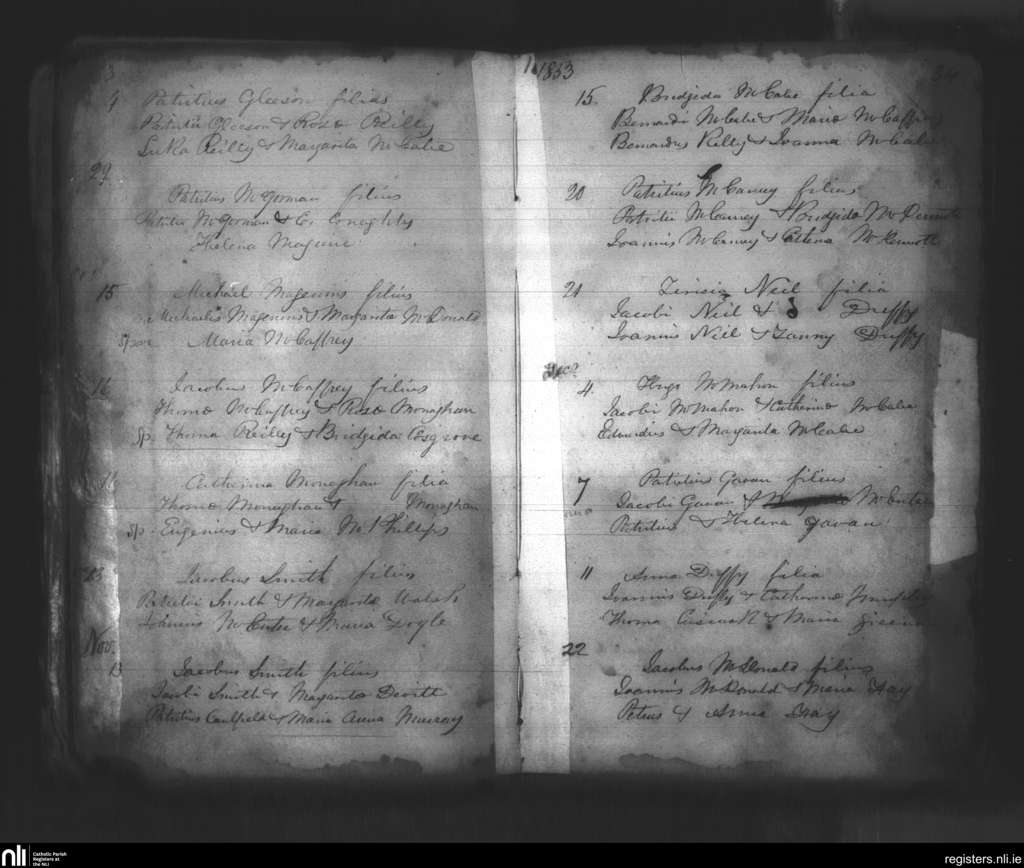 1853
4 Patritius Gleeson filius
Patritii Gleeson & Rosæ Reilly
Luka Reilly & Margarita McCabe
29
Patritius McGorman filius
Patritii McGorman & Cor
Helena Maguire
15 Michael Magennis filius
Michaelis Magennis & Margarita McDonald
Spon Maria McCaffrey
16 Jacobus McCaffrey filius
Thomæ McCaffrey & Rosæ Monaghan
Sp. Thoma Reilly & Bridgida Cosgrove
11 Catherina Monaghan filia
Thomæ Monaghan & Monaghan
Sp. Eugenius & Maria McPhillips
13 Jacobus Smith filius
Patritii Smith & Margarita Walsh
Joannes & Maria Doyle
Nov.
13 Jacobus Smith filius
Jacobi Smith & Margarita
Patritius Caulfield & Maria Anna Murray
34
15. Bridgida McCabe filia
Bernardi McCabe & Maria McCaffrey
Bernardus Reilly & Joanna McCabe
20 Patritius McCanny filius
Patritii McCanny & Bridgida McDermott
Joannis McCanny & McDermott
21 Teresia Neil filia
Jacobi Neil & Duffy
Joannis Neil & Fanny Duffy
Dec.
4. Hugo McMahon filius
Jacobi McMahon & Catharinæ McCabe
Edmundus & Margarita McCabe
7 Patritius Gavan filius
Jacobi Gavan &
Patritius & Helena Gavan
11 Anna Duffy filia
Joannis Duffy & Catharinæ
Thoma & Maria
22
Jacobus McDonald filius
Joannis McDonald & Maria Hay
Petrus & Anna Hay
nli
Catholic Parish
Registers at
the NLI
registers.nli.ie